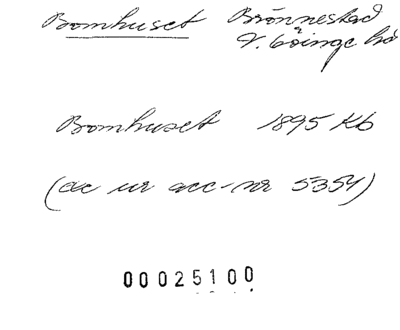 Bomhuset Brönnestad
V. Göinge hd
Bomhuset 1895 Kb
(ac ur acc-nr 5354)
00025100